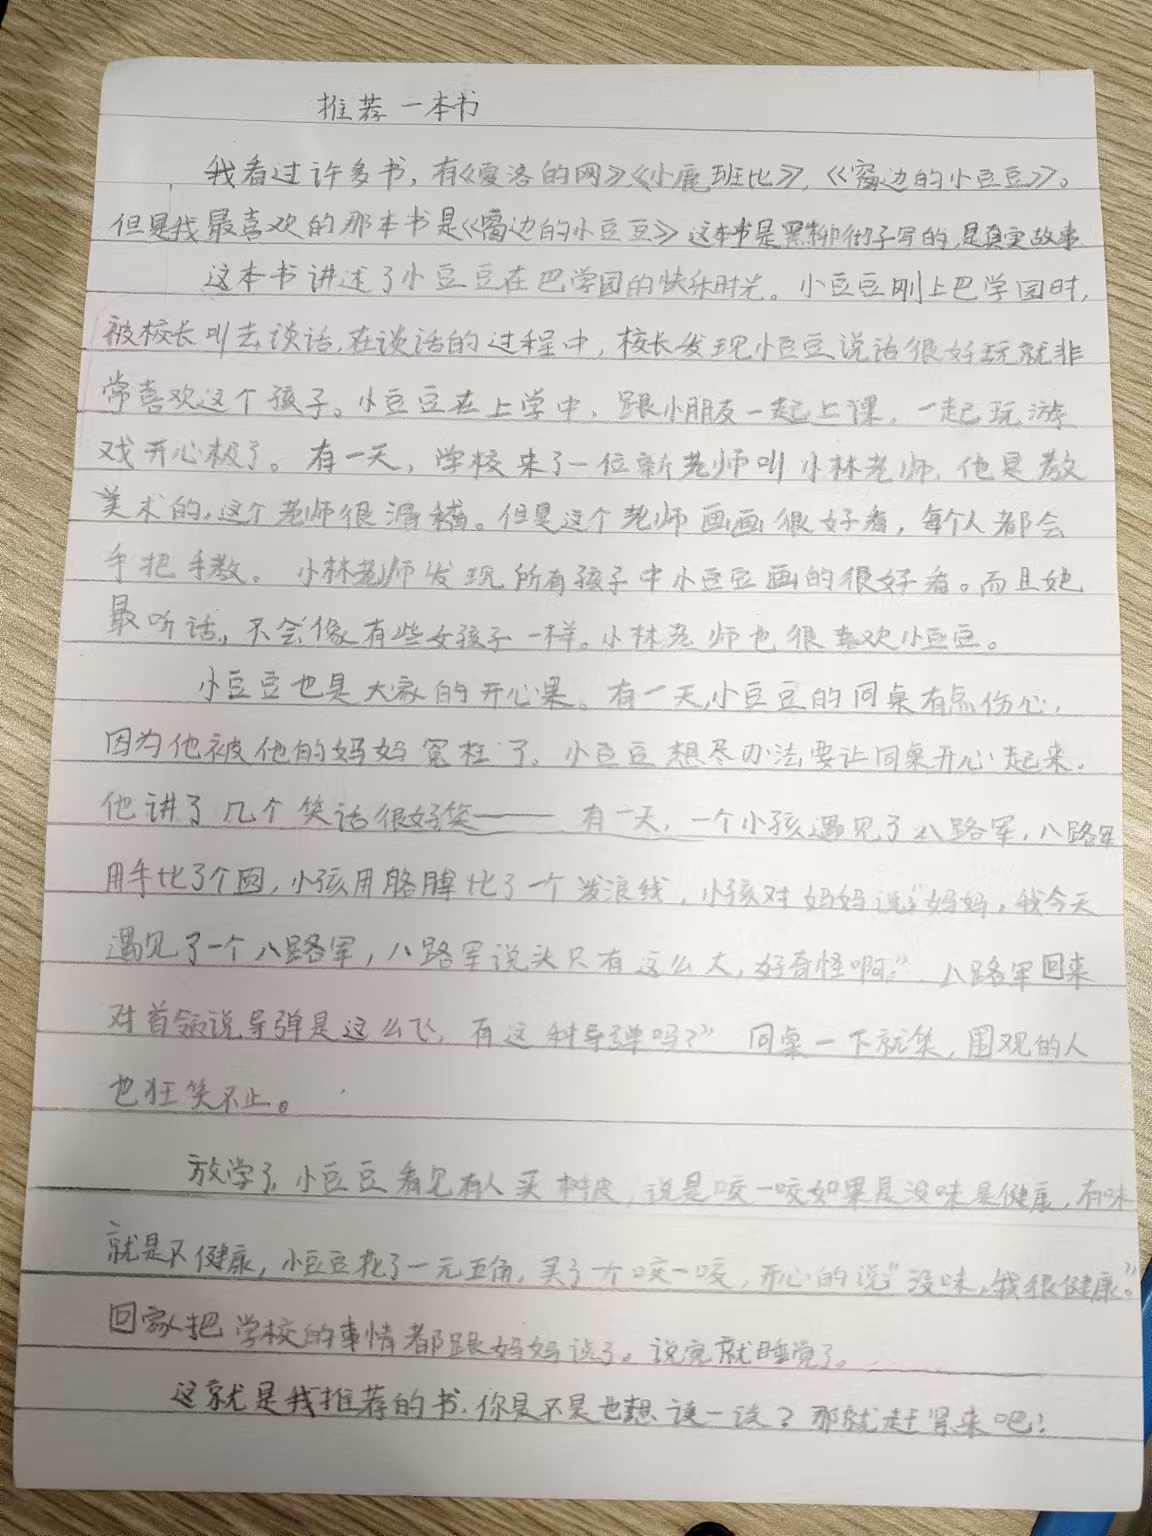 推荐一本书
我看过许多书，有《夏洛的网》《小鹿班比》，《窗边的小豆豆》。
但是我最喜欢的那本书是《窗边的小豆豆》这本书是黑柳彻子写的，是真实故事
这本书讲述了小豆豆在巴学园的快乐时光。小豆豆刚上巴学园时，
被校长叫去谈话，在谈话的过程中，校长发现小豆豆说话很好玩就非
常喜欢这个孩子。小豆豆在上学中，跟小朋友一起上课，一起玩游
戏开心极了。有一天，学校来了一位新老师叫小林老师，他是教
美术的，这个老师很滑稽。但是这个老师画画很好看，每个人都会
手把手教。小林老师发现所有孩子中小豆豆画的很好看。而且她
最听话，不会像有些女孩子一样。小林老师也很喜欢小豆豆。
小豆豆也是大家的开心果。有一天，小豆豆的同桌有点伤心，
因为他被他的妈妈冤枉了。小豆豆想尽办法要让同桌开心起来，
他讲了几个笑话很好笑——有一天，一个小孩遇见了八路军，八路军
用手比了个圆，小孩用胳膊比了一个波浪线，小孩对妈妈说："妈妈，我今天
遇见了一个八路军，八路军说头只有这么大，好奇怪啊。"八路军回来
对首领说导弹是这么飞，有这种导弹吗？"同桌一下就笑，围观的人
也狂笑不止。
放学了，小豆豆看见有人买树皮，说是咬一咬如果是没味是健康，有味
就是不健康，小豆豆花了一元五角，买了个咬一咬，开心的说"没味，我很健康。"
回家把学校的事情都跟妈妈说了。说完就睡觉了。
这就是我推荐的书，你是不是也想读一读？那就赶紧来吧！